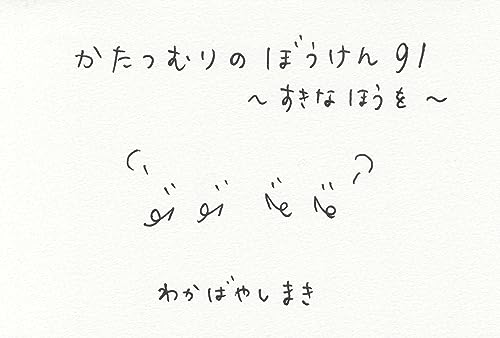 かたつむりのぼうけん91
～すきなほうを～
わかばやしまき